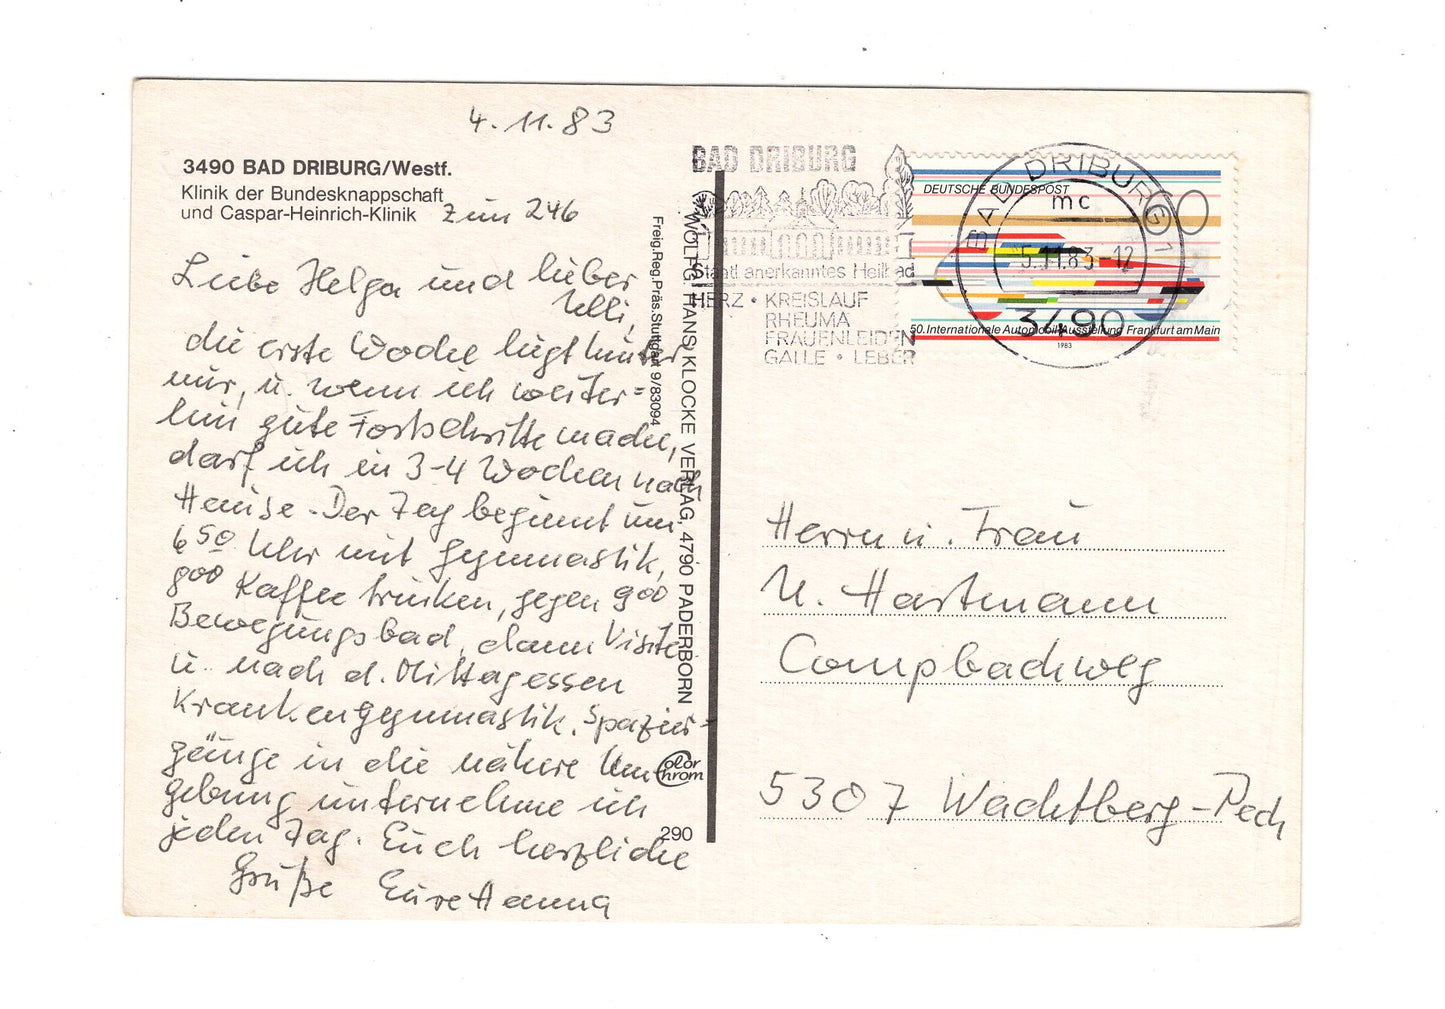 4.11.83
3490 BAD DRIBURG/Westf.
Klinik der Bundesknappschaft
und Caspar-Heinrich-Klinik
Zim 246
Liebe Helga und lieber
Ulli,
die erste Woche liegt hinter
mir, u. wenn ich weiter=
hin gute Fortschritte mache,
darf ich in 3-4 Wochen nach
Hause. Der Tag beginnt um
6 50 Uhr mit Gymnastik,
8 00 Kaffee trinken, gegen 9 00
Bewegungsbad, dann Visite
u. nach d. Mittagessen
Krankengymnastik. Spazier=
gänge in die nähere Um
gebung unternehme ich
jeden Tag. Euch herzliche
Grüße Eure Hanna
Freig.Reg.Präs.Stuttgart 9/83094
WOLFG. HANS KLOCKE VERLAG, 4790 PADERBORN
Color
Chrom
290
BAD DRIBURG
Staatl anerkanntes Heilbad
HERZ • KREISLAUF
RHEUMA
FRAUENLEIDEN
GALLE • LEBER
DEUTSCHE BUNDESPOST
50. Internationale Automobil-Ausstellung Frankfurt am Main
1983
BAD DRIBURG 1
mc
-5.11.83-12
3490
Herrn u. Frau
U. Hartmann
Compbachweg
5307 Wachtberg-Pech